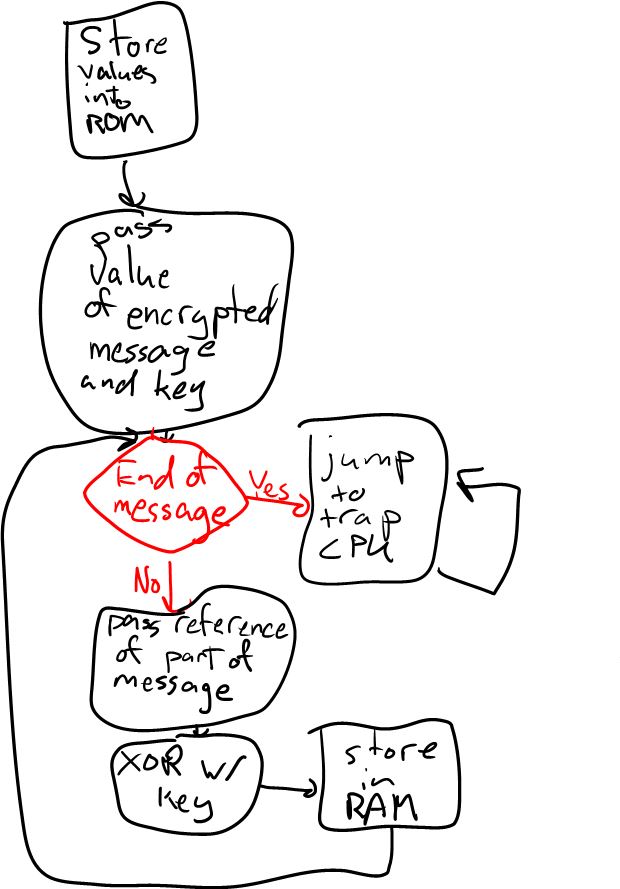 Store
values
into
ROM
pass
value
of encrypted
message
and key
End of
message
Yes
jump
to
trap
CPU
No
pass reference
of part of
message
XOR w/
key
store
in
RAM